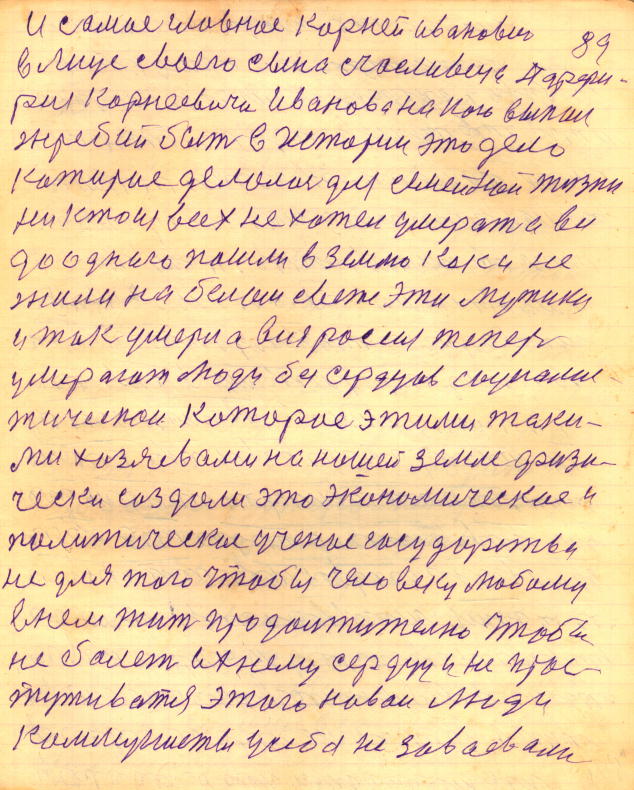 И самое главное Корней иванович 89
в лице своего сына счасливеца Парфи-
рия Корнеевича Иванова на кого выпал
жребий быт в истории это дело
которое делолос для семейной жизни
ни кто из всех не хотел умират а вси
до одного пошли в землю Как и не
жили на белом свете эти мужики
и так умерли а вся росия теперь
умерают люди без сердцов социалис-
тической которое этими таки-
ми хозяевами на нашей земле физи-
чески создали это экономическое и
политическое ученое государства
не для того чтобы человеку любому
в нем жит продолжително чтобы
не болет в нему сердцу и не прос-
тужыватся этого новои люди
коммунисты у себя не завоевали